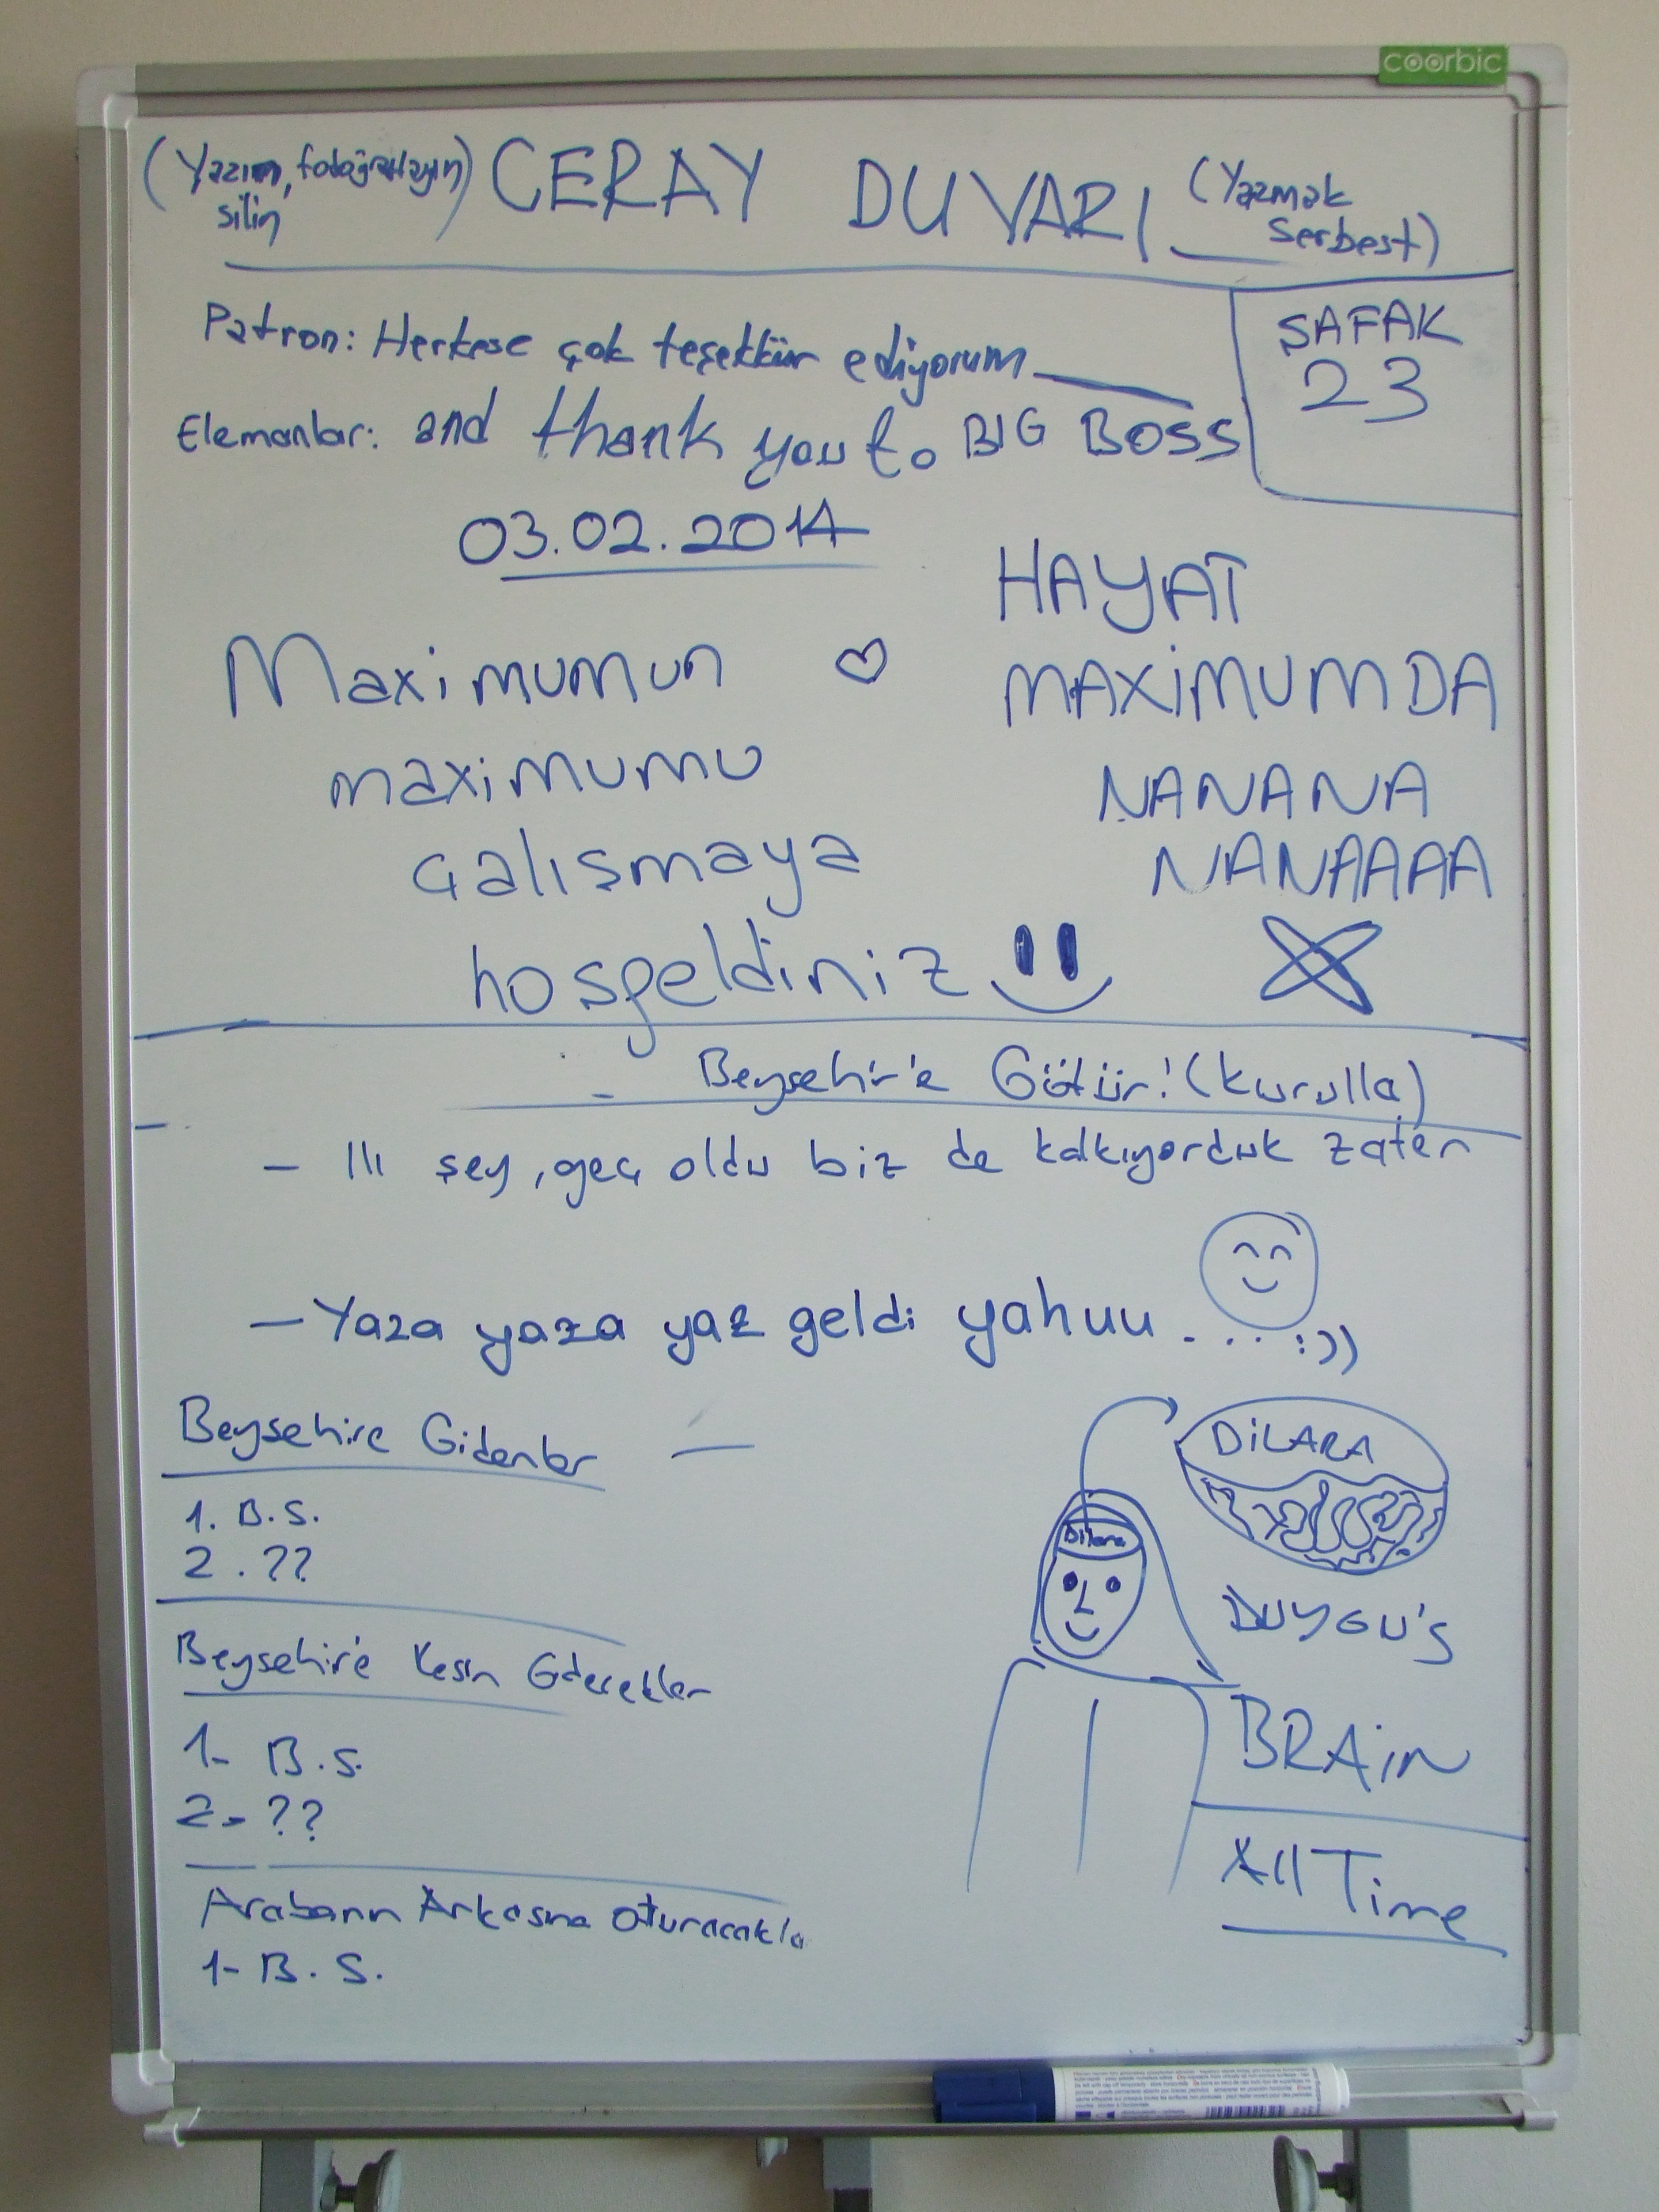 coorbic
(Yazın, fotoğraflayın, silin) CERAY DUVARI (Yazmak Serbest)
ŞAFAK
23
Patron: Herkese çok teşekkür ediyorum
Elemanlar: and thank you to BIG BOSS
03.02.2014
Maximumun ♡
maximumu
çalışmaya
hoşgeldiniz
HAYAT
MAXİMUMDA
NANANA
NANAAAA
Beyşehir'e Götür! (kurulla)
- Iıı şey, geç oldu biz de kalkıyorduk zaten
- Yaza yaza yaz geldi yahuu.... :))
Beyşehire Gidenler
1. B.S.
2. ??
Beyşehir'e Kesin Gidecekler
1- B.S.
2- ??
Arabanın Arkasına Oturacakla
1- B.S.
DİLARA
Dilara
DUYGU'S
BRAiN
All Time